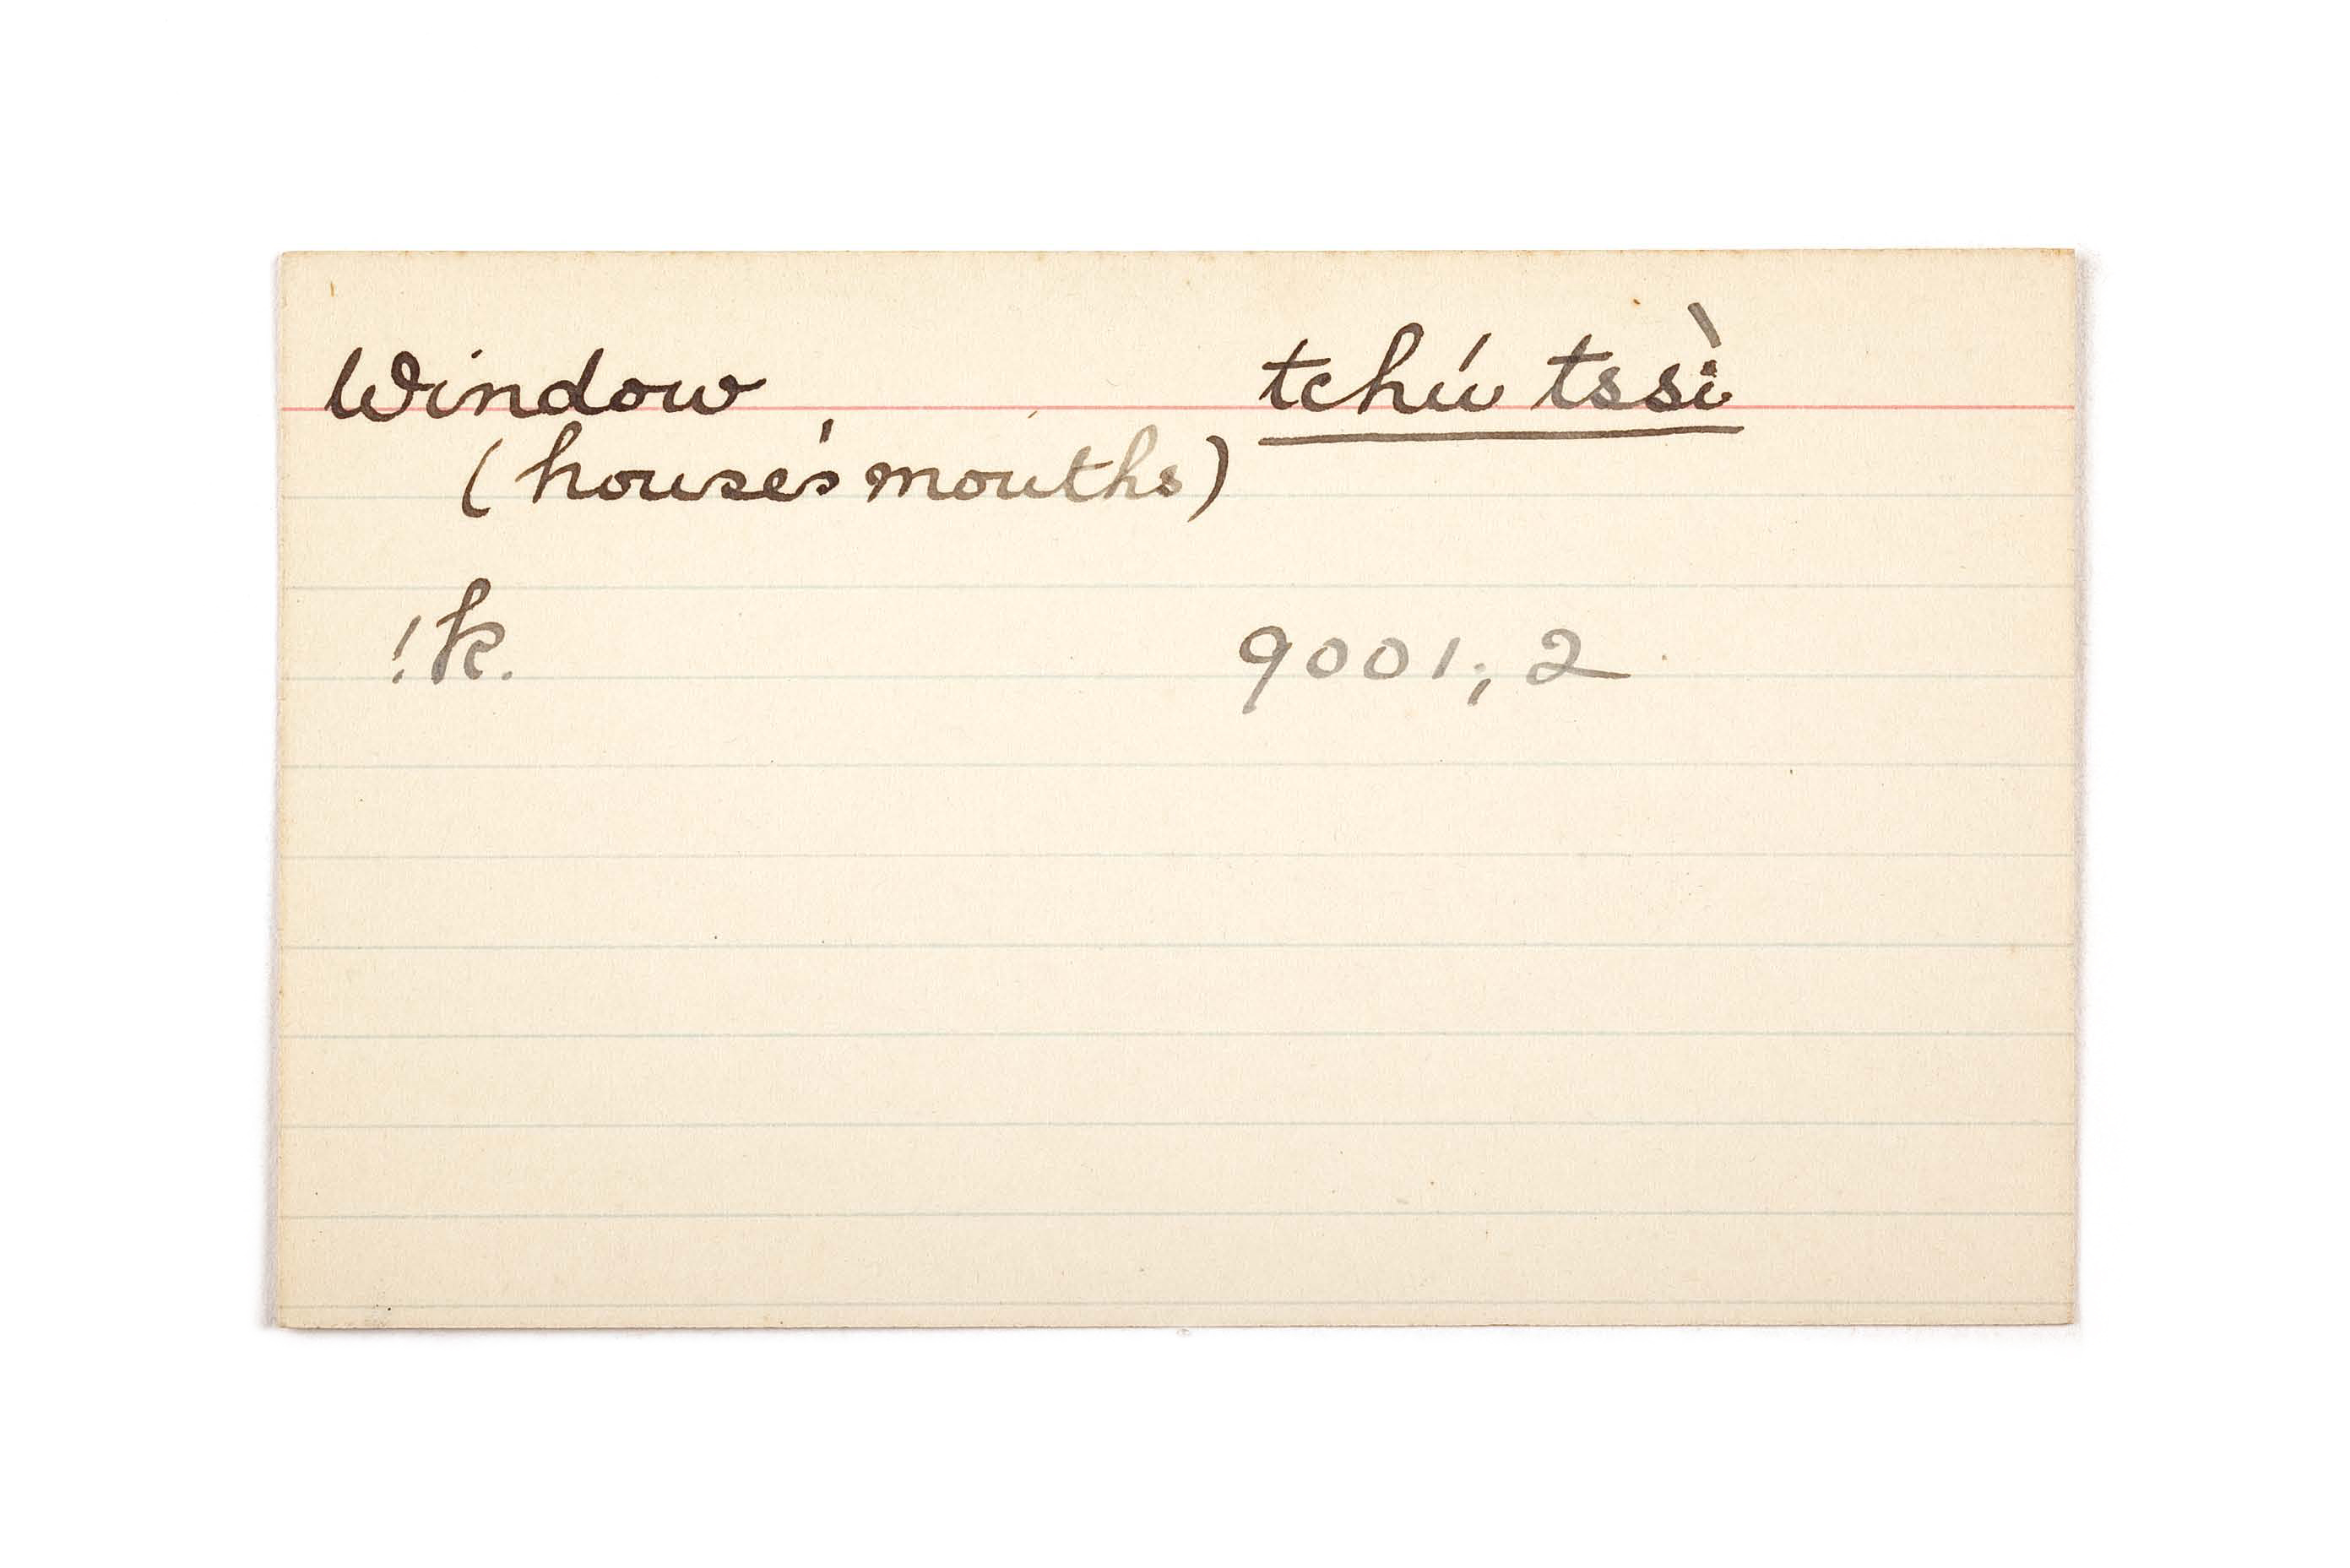 Window tchú tssì
(house's mouths)
!k. 9001; 2